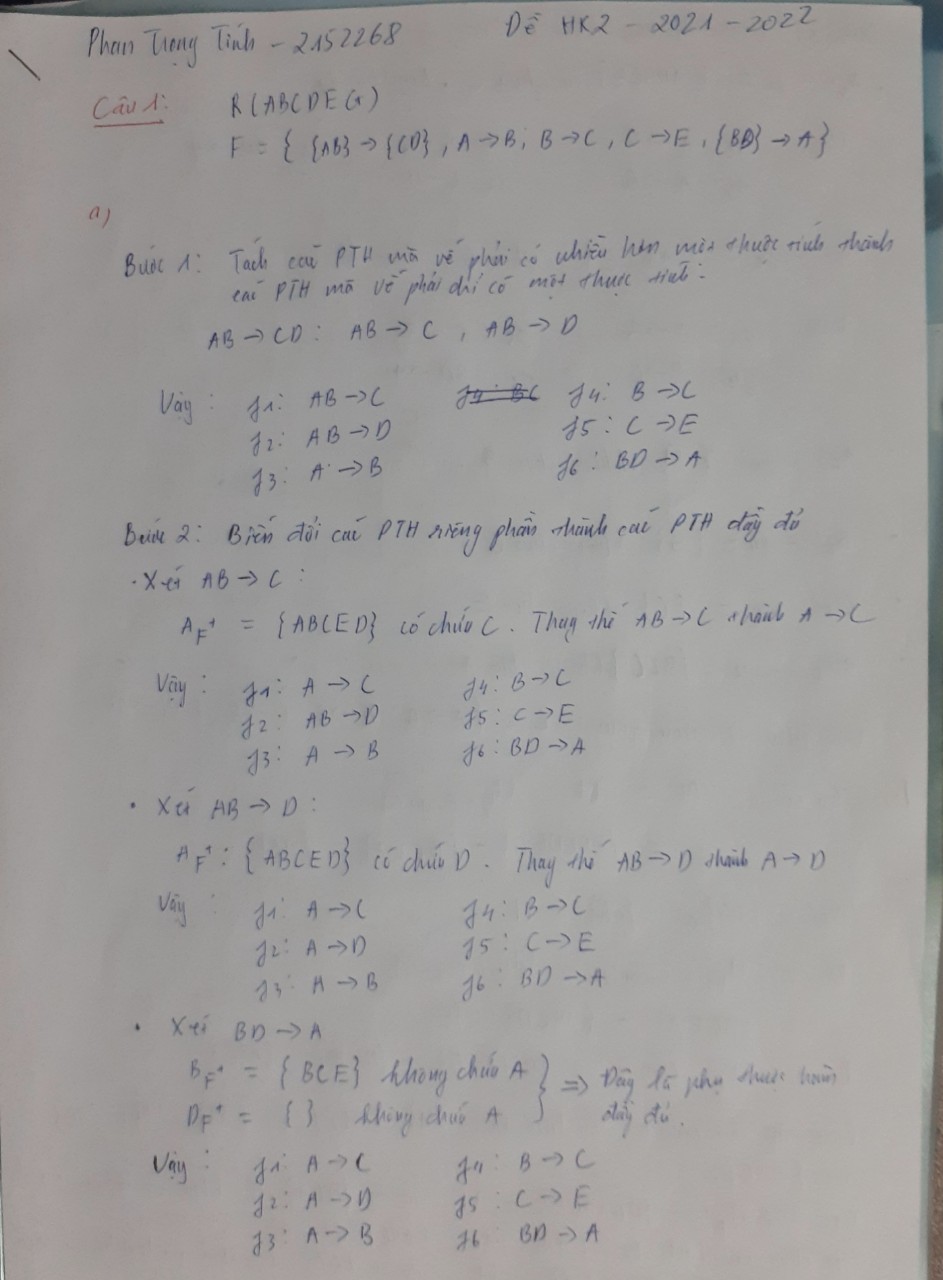 Phan Trọng Tính - 2152268 Đề HK2 - 2021 - 2022
Câu 1: R(ABCDEG)
F = { {AB} → {CD}, A → B, B → C, C → E, {BD} → A }
a)
Bước 1: Tách các PTH mà vế phải có nhiều hơn một thuộc tính thành
các PTH mà vế phải chỉ có một thuộc tính:
AB → CD: AB → C, AB → D
Vậy: f1: AB → C f4: B → C
f2: AB → D f5: C → E
f3: A → B f6: BD → A
Bước 2: Biến đổi các PTH riêng phần thành các PTH đầy đủ
· Xét AB → C:
A_F⁺ = {ABCED} có chứa C. Thay thế AB → C thành A → C
Vậy: f1: A → C f4: B → C
f2: AB → D f5: C → E
f3: A → B f6: BD → A
· Xét AB → D:
A_F⁺: {ABCED} có chứa D. Thay thế AB → D thành A → D
Vậy: f1: A → C f4: B → C
f2: A → D f5: C → E
f3: A → B f6: BD → A
· Xét BD → A
B_F⁺ = {BCE} không chứa A } ⇒ Đây là phụ thuộc hàm
D_F⁺ = { } không chứa A đầy đủ.
Vậy: f1: A → C f4: B → C
f2: A → D f5: C → E
f3: A → B f6: BD → A